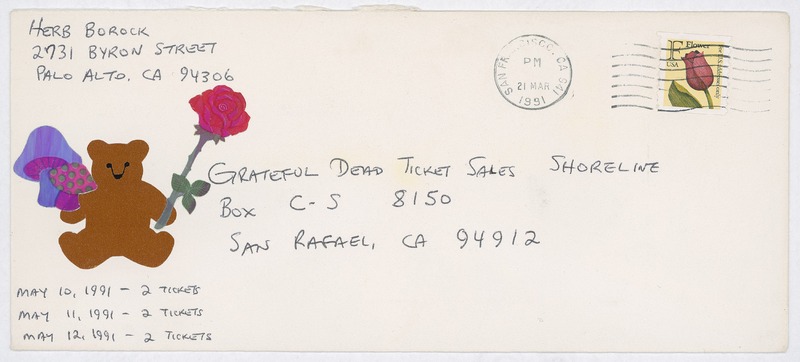 Herb Borock
2731 Byron Street
Palo Alto, CA 94306
SAN FRANCISCO, CA 941
PM
21 MAR
1991
F Flower
USA
Grateful Dead Ticket Sales Shoreline
Box C-S 8150
San Rafael, CA 94912
May 10, 1991 - 2 tickets
May 11, 1991 - 2 tickets
May 12, 1991 - 2 tickets